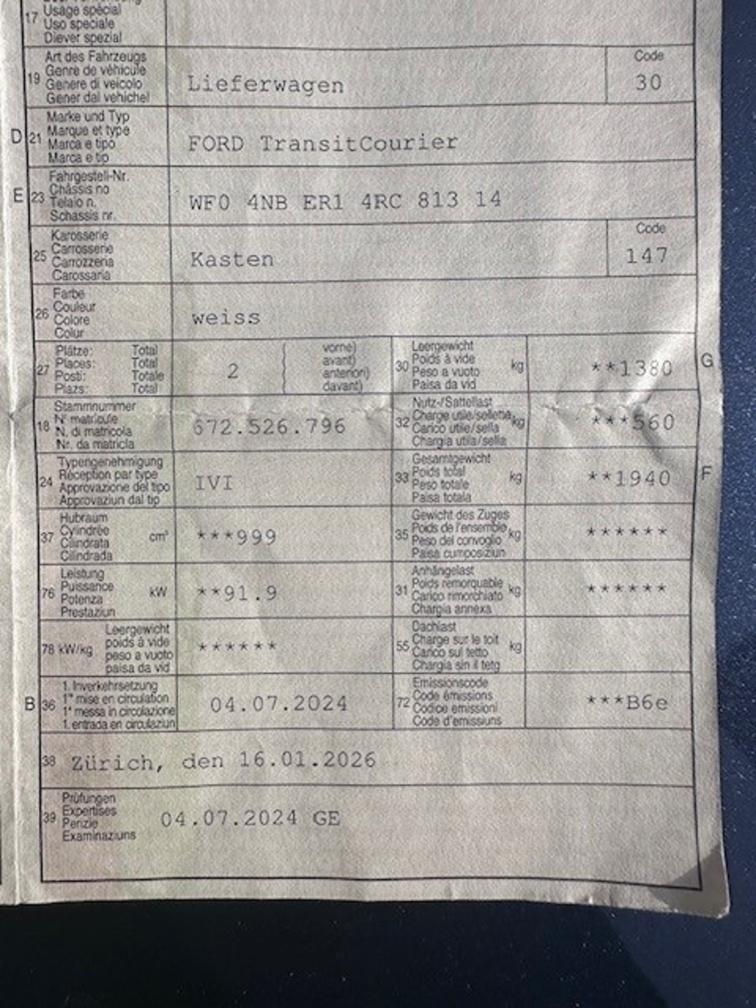 17 Usage spécial
Uso speciale
Diever spezial
19 Art des Fahrzeugs
Genre de véhicule
Genere di veicolo
Gener dal vehichel
Lieferwagen
Code
30
D 21 Marke und Typ
Marque et type
Marca e tipo
Marca e tip
FORD TransitCourier
E 23 Fahrgestell-Nr.
Châssis no
Telaio n.
Schassis nr.
WF0 4NB ER1 4RC 813 14
25 Karosserie
Carrosserie
Carrozzeria
Carossaria
Kasten
Code
147
26 Farbe
Couleur
Colore
Colur
weiss
27 Plätze: Total
Places: Total
Posti: Totale
Plazs: Total
2
vorne)
avant)
anteriori)
davant)
30 Leergewicht
Poids à vide kg
Peso a vuoto
Paisa da vid
**1380 G
18 Stammnummer
N° matricule
N. di matricola
Nr. da matricla
672.526.796
32 Nutz-/Sattellast
Charge utile/sellette kg
Carico utile/sella
Chargia utila/sella
***560
24 Typengenehmigung
Réception par type
Approvazione del tipo
Approvaziun dal tip
IVI
33 Gesamtgewicht
Poids total kg
Peso totale
Paisa totala
**1940 F
37 Hubraum
Cylindrée cm³
Cilindrata
Cilindrada
***999
35 Gewicht des Zuges
Poids de l'ensemble kg
Peso del convoglio
Paisa cumposiziun
******
76 Leistung
Puissance kW
Potenza
Prestaziun
**91.9
31 Anhängelast
Poids remorquable kg
Carico rimorchiato
Chargia annexa
******
78 kW/kg Leergewicht
poids à vide
peso a vuoto
paisa da vid
******
55 Dachlast
Charge sur le toit kg
Carico sul tetto
Chargia sin il tetg
B 36 1. Inverkehrsetzung
1re mise en circulation
1a messa in circolazione
1. entrada en circulaziun
04.07.2024
72 Emissionscode
Code émissions
Codice emissioni
Code d'emissiuns
***B6e
38 Zürich, den 16.01.2026
39 Prüfungen
Expertises
Perizie
Examinaziuns
04.07.2024 GE